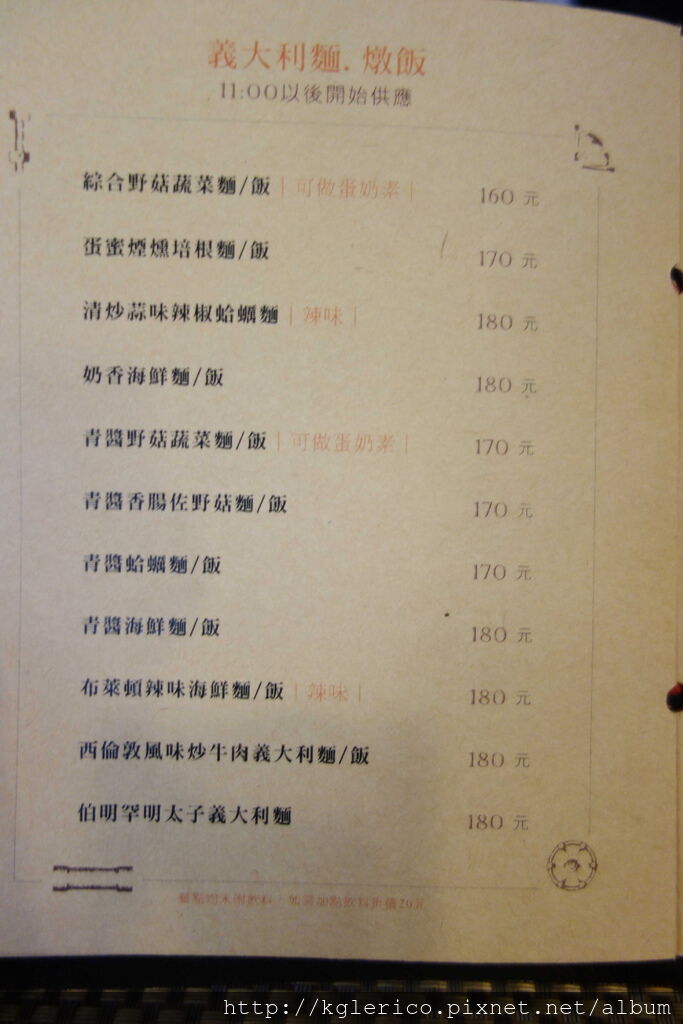 義大利麵. 燉飯
11:00以後開始供應
綜合野菇蔬菜麵/飯｜可做蛋奶素｜ 160 元
蛋蜜煙燻培根麵/飯 170 元
清炒蒜味辣椒蛤蠣麵｜辣味｜ 180 元
奶香海鮮麵/飯 180 元
青醬野菇蔬菜麵/飯｜可做蛋奶素｜ 170 元
青醬香腸佐野菇麵/飯 170 元
青醬蛤蠣麵/飯 170 元
青醬海鮮麵/飯 180 元
布萊頓辣味海鮮麵/飯｜辣味｜ 180 元
西倫敦風味炒牛肉義大利麵/飯 180 元
伯明罕明太子義大利麵 180 元
餐點均未附飲料 加點飲料折價20元
http://kglerico.pixnet.net/album